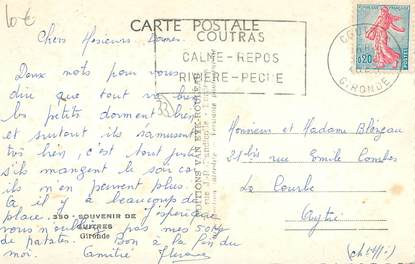 10€
CARTE POSTALE
COUTRAS
CALME - REPOS
RIVIÈRE - PECHE
GIRONDE
0,20
Chers Messieurs Dames
Deux mots pour vous
dire que tout va bien
les petits dorment bien
et surtout ils s'amusent
très bien, c'est tout juste
s'ils mangent le soir car
ils n'en peuvent plus.
Ca il y a beaucoup de
place. J'espère que
vous n'oubliez pas mes 50 kg
de patates. Bon à la fin du
moi. Amitié
330 - SOUVENIR DE
GUITRES
Gironde
EDITIONS VAN EYK-ROULE
Monsieur et Madame Bloreau
21 bis rue Emile Combes
Le Courbe
Aytré
(ch-M-)